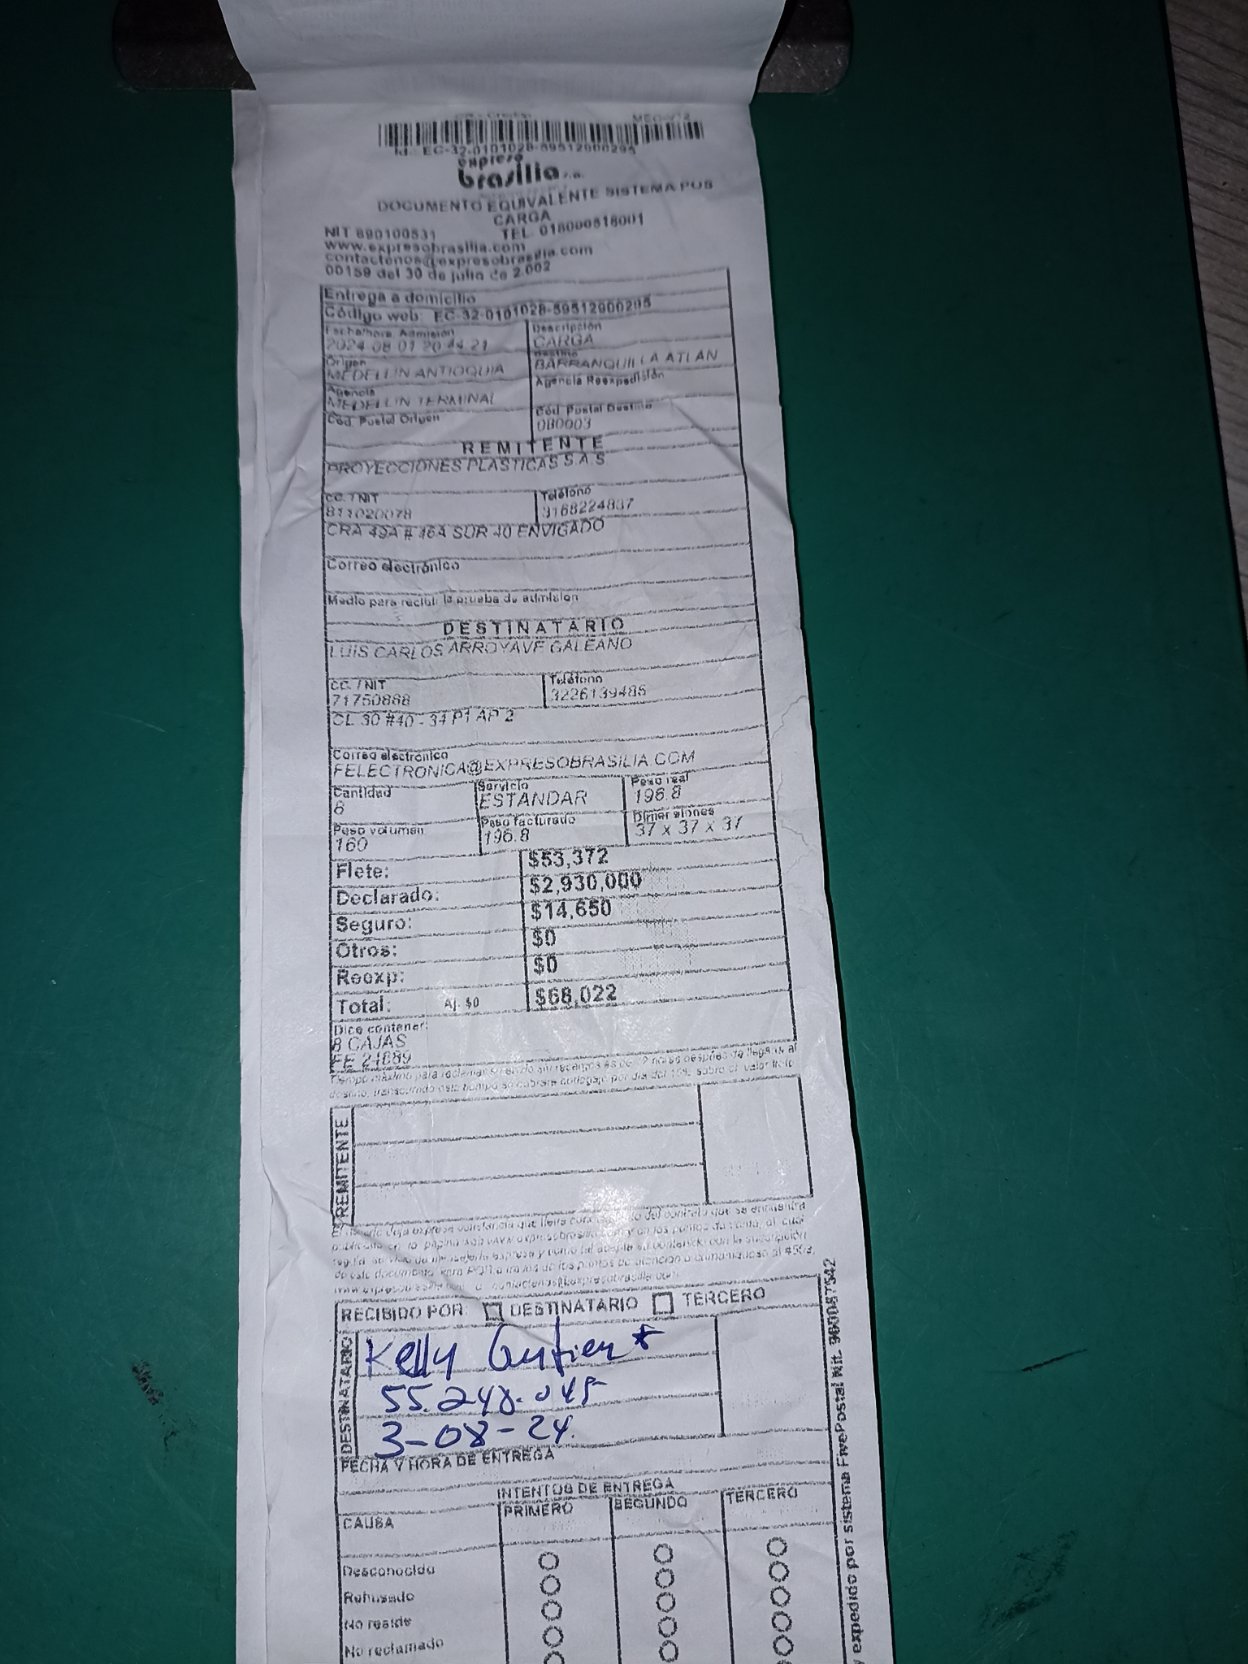 Id.: EC-32-0101028-59512900295
expreso
brasilia s.a.
DOCUMENTO EQUIVALENTE SISTEMA POS
CARGA
NIT 890100531 TEL. 018000518001
www.expresobrasilia.com
contactenos@expresobrasilia.com
00159 del 30 de julio de 2.002
Entrega a domicilio
Código web: EC-32-0101028-59512900295
Fecha/hora Admisión Descripción
2024-08-01 20:44:21 CARGA
Origen Destino
MEDELLIN ANTIOQUIA BARRANQUILLA ATLAN
Agencia Agencia Reexpedisión
MEDELLIN TERMINAL
Cód. Postal Origen Cód. Postal Destino
080003
REMITENTE
PROYECCIONES PLASTICAS S.A.S
CC. / NIT Teléfono
811020078 3168224837
CRA 49A # 46A SUR 40 ENVIGADO
Correo electrónico
Medio para recibir la prueba de admision
DESTINATARIO
LUIS CARLOS ARROYAVE GALEANO
CC. / NIT Teléfono
71750888 3226139485
CL 30 #40 - 34 P1 AP 2
Correo electrónico
FELECTRONICA@EXPRESOBRASILIA.COM
Cantidad Servicio Peso real
8 ESTANDAR 196.8
Peso volumen Peso facturado Dimensiones
160 196.8 37 x 37 x 37
Flete: $53,372
Declarado: $2,930,000
Seguro: $14,650
Otros: $0
Reexp: $0
Total: Aj. $0 $68,022
Dice contener:
8 CAJAS
FE 24889
REMITENTE
RECIBIDO POR: DESTINATARIO TERCERO
DESTINATARIO
Kelly
55.248.045
3-08-24.
FECHA Y HORA DE ENTREGA
INTENTOS DE ENTREGA
CAUSA PRIMERO SEGUNDO TERCERO
Desconocido
Rehusado
No reside
No reclamado
y expedido por sistema FivePostal Nit. 900087542